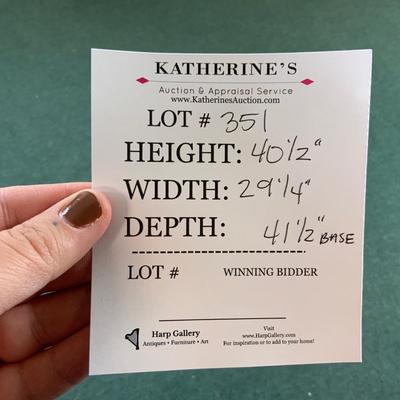 KATHERINE'S
Auction & Appraisal Service
www.KatherinesAuction.com
LOT # 351
HEIGHT: 40 1/2"
WIDTH: 29 1/4"
DEPTH: 41 1/2" BASE
LOT # WINNING BIDDER
Harp Gallery
Antiques • Furniture • Art
Visit
www.HarpGallery.com
For inspiration or to add to your home!